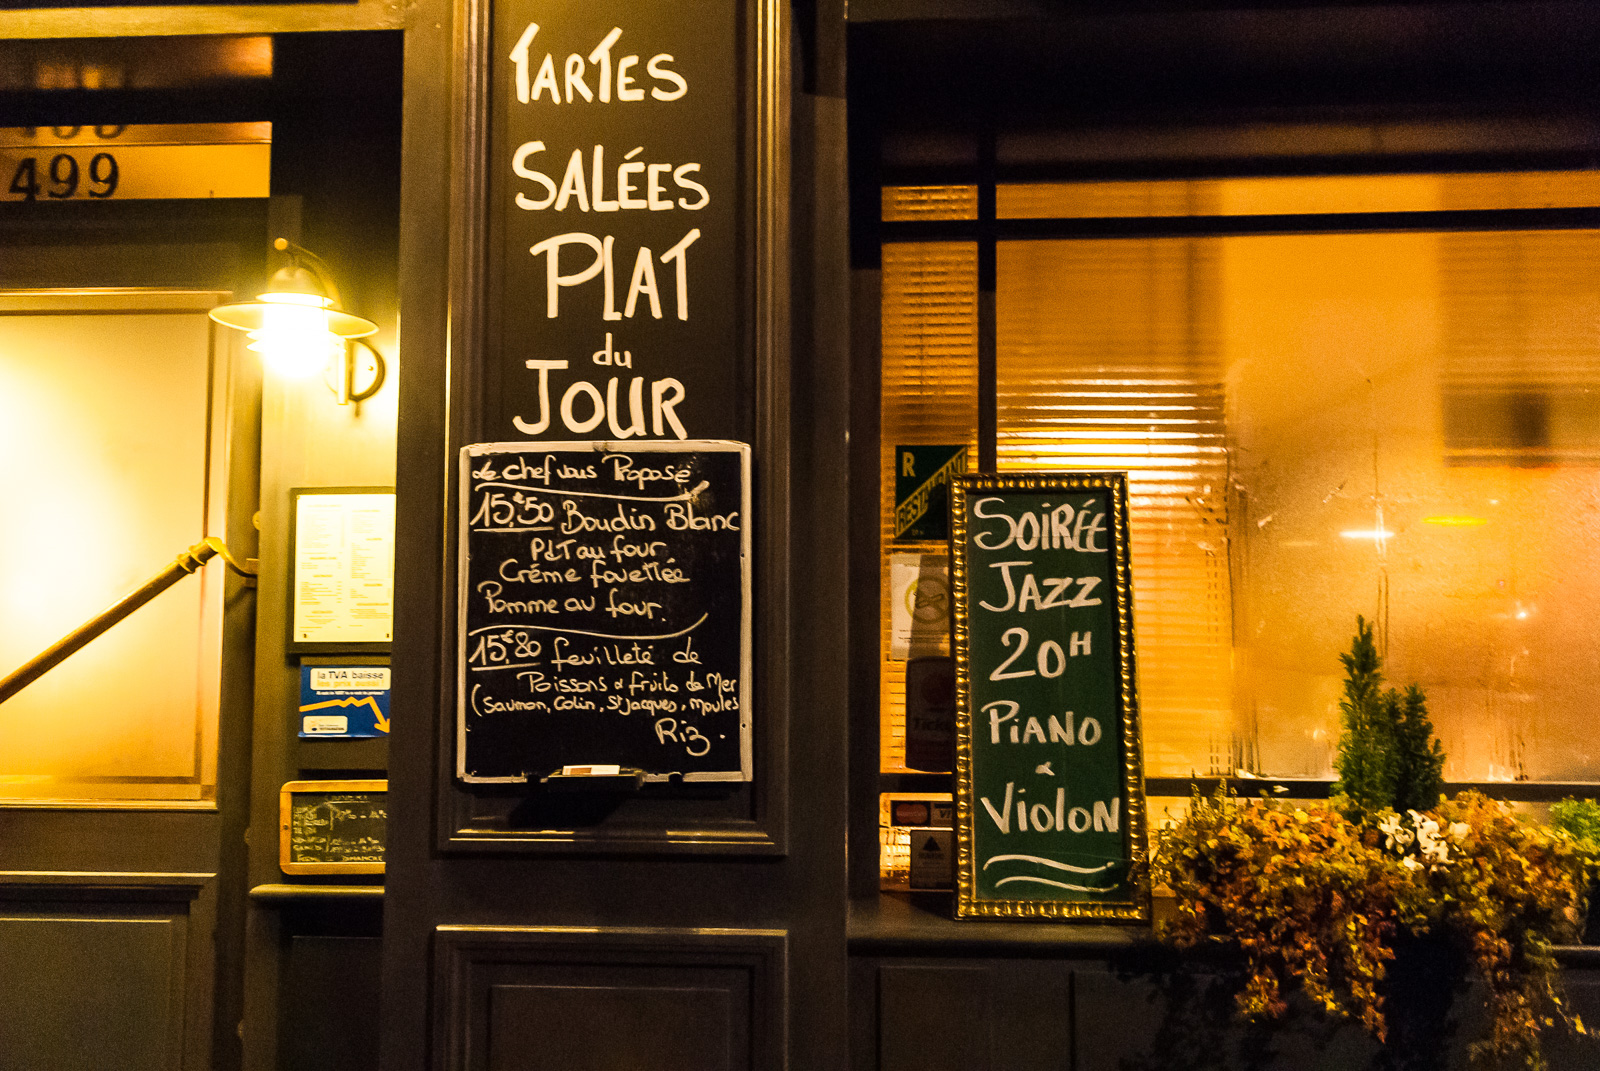 499
TARTES
SALÉES
PLAT
du
JOUR
Le chef vous Propose
15.€50 Boudin Blanc
PdT au four
Créme fouettée
Pomme au four.
15.€80 feuilleté de
Poissons & fruits de Mer
(Saumon, Colin, St Jacques, Moules
Riz.
la TVA baisse
les prix aussi !
R
RESTAURANT
SOIRÉE
JAZZ
20H
PIANO
&
VIOLON